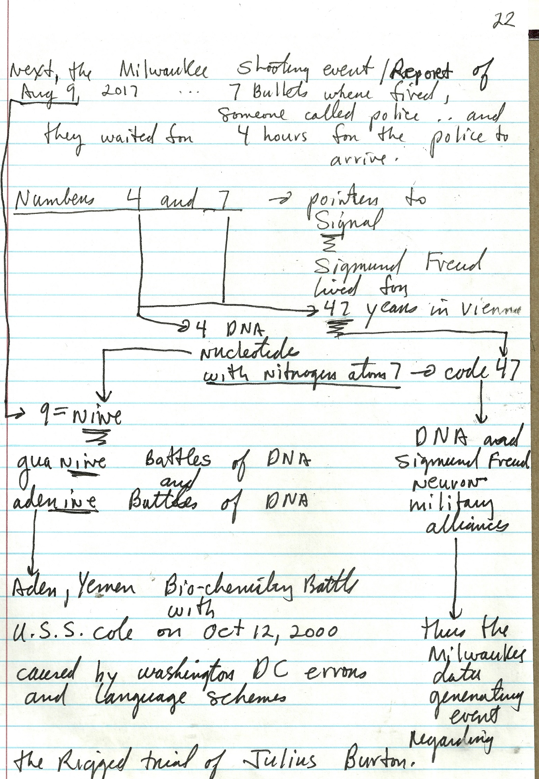 22
Next, the Milwaukee Shooting event/Report of
Aug 9, 2017 ... 7 Bullets where fired,
Someone called police .. and
they waited for 4 hours for the police to
arrive.
Numbers 4 and 7 → pointers to
Signal
Sigmund Freud
lived for
47 years in Vienna
→ 4 DNA
Nucleotides
with Nitrogen atom 7 → code 47
→ 9 = Nine
DNA and
guanine Battles of DNA
Sigmund Freud
and
Neuron
adenine Battles of DNA
military
alliances
Aden, Yemen Bio-chemistry Battle
with
U.S.S. Cole on Oct 12, 2000
thus the
Milwaukee
caused by Washington DC errors
data
and Language schemes
generating
event
regarding
the Rigged trial of Julius Burton.